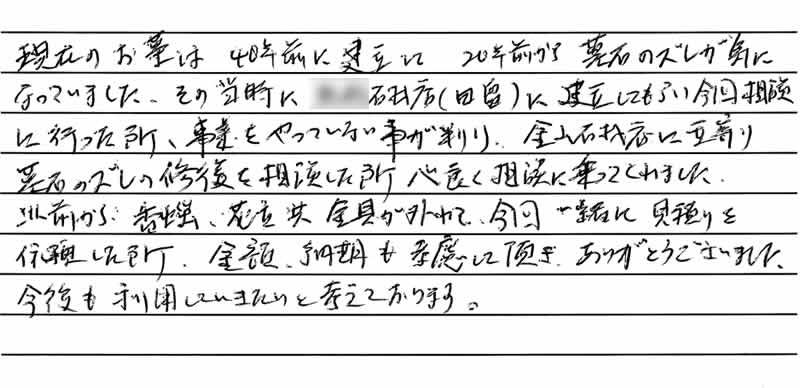 現在のお墓は 40年前に建立に 20年前から 墓石のズレが気に
なっていました。その当時に 石材店(田留)に 建立してもらい今回相談
に行った所、事業をやっていない事が判り、金山石材店に立寄り
墓石のズレの修復を相談した所 心良く相談に乗ってくれました。
以前から 香炉、花立共 金具が外れて、今回 一緒に 見積りを
依頼した所、金額、納期も考慮して頂き ありがとうございました。
今後も 利用していきたいと考えております。